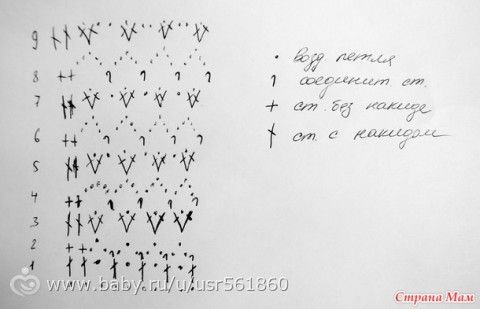 9
8
7
6
5
4
3
2
1
• возд петля
соединит ст.
+ ст. без накида
ст. с накидом
www.baby.ru/u/usr561860
Страна Мам